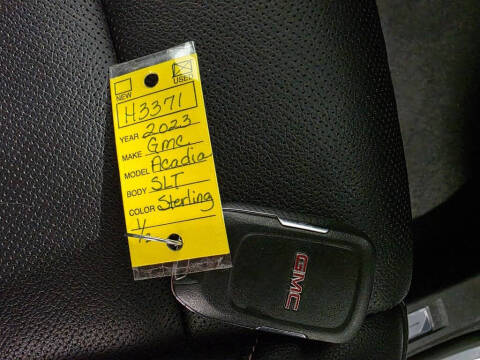 NEW USED
H3371
YEAR 2023
MAKE Gmc
MODEL Acadia
BODY SLT
COLOR Sterling
1/2
GMC